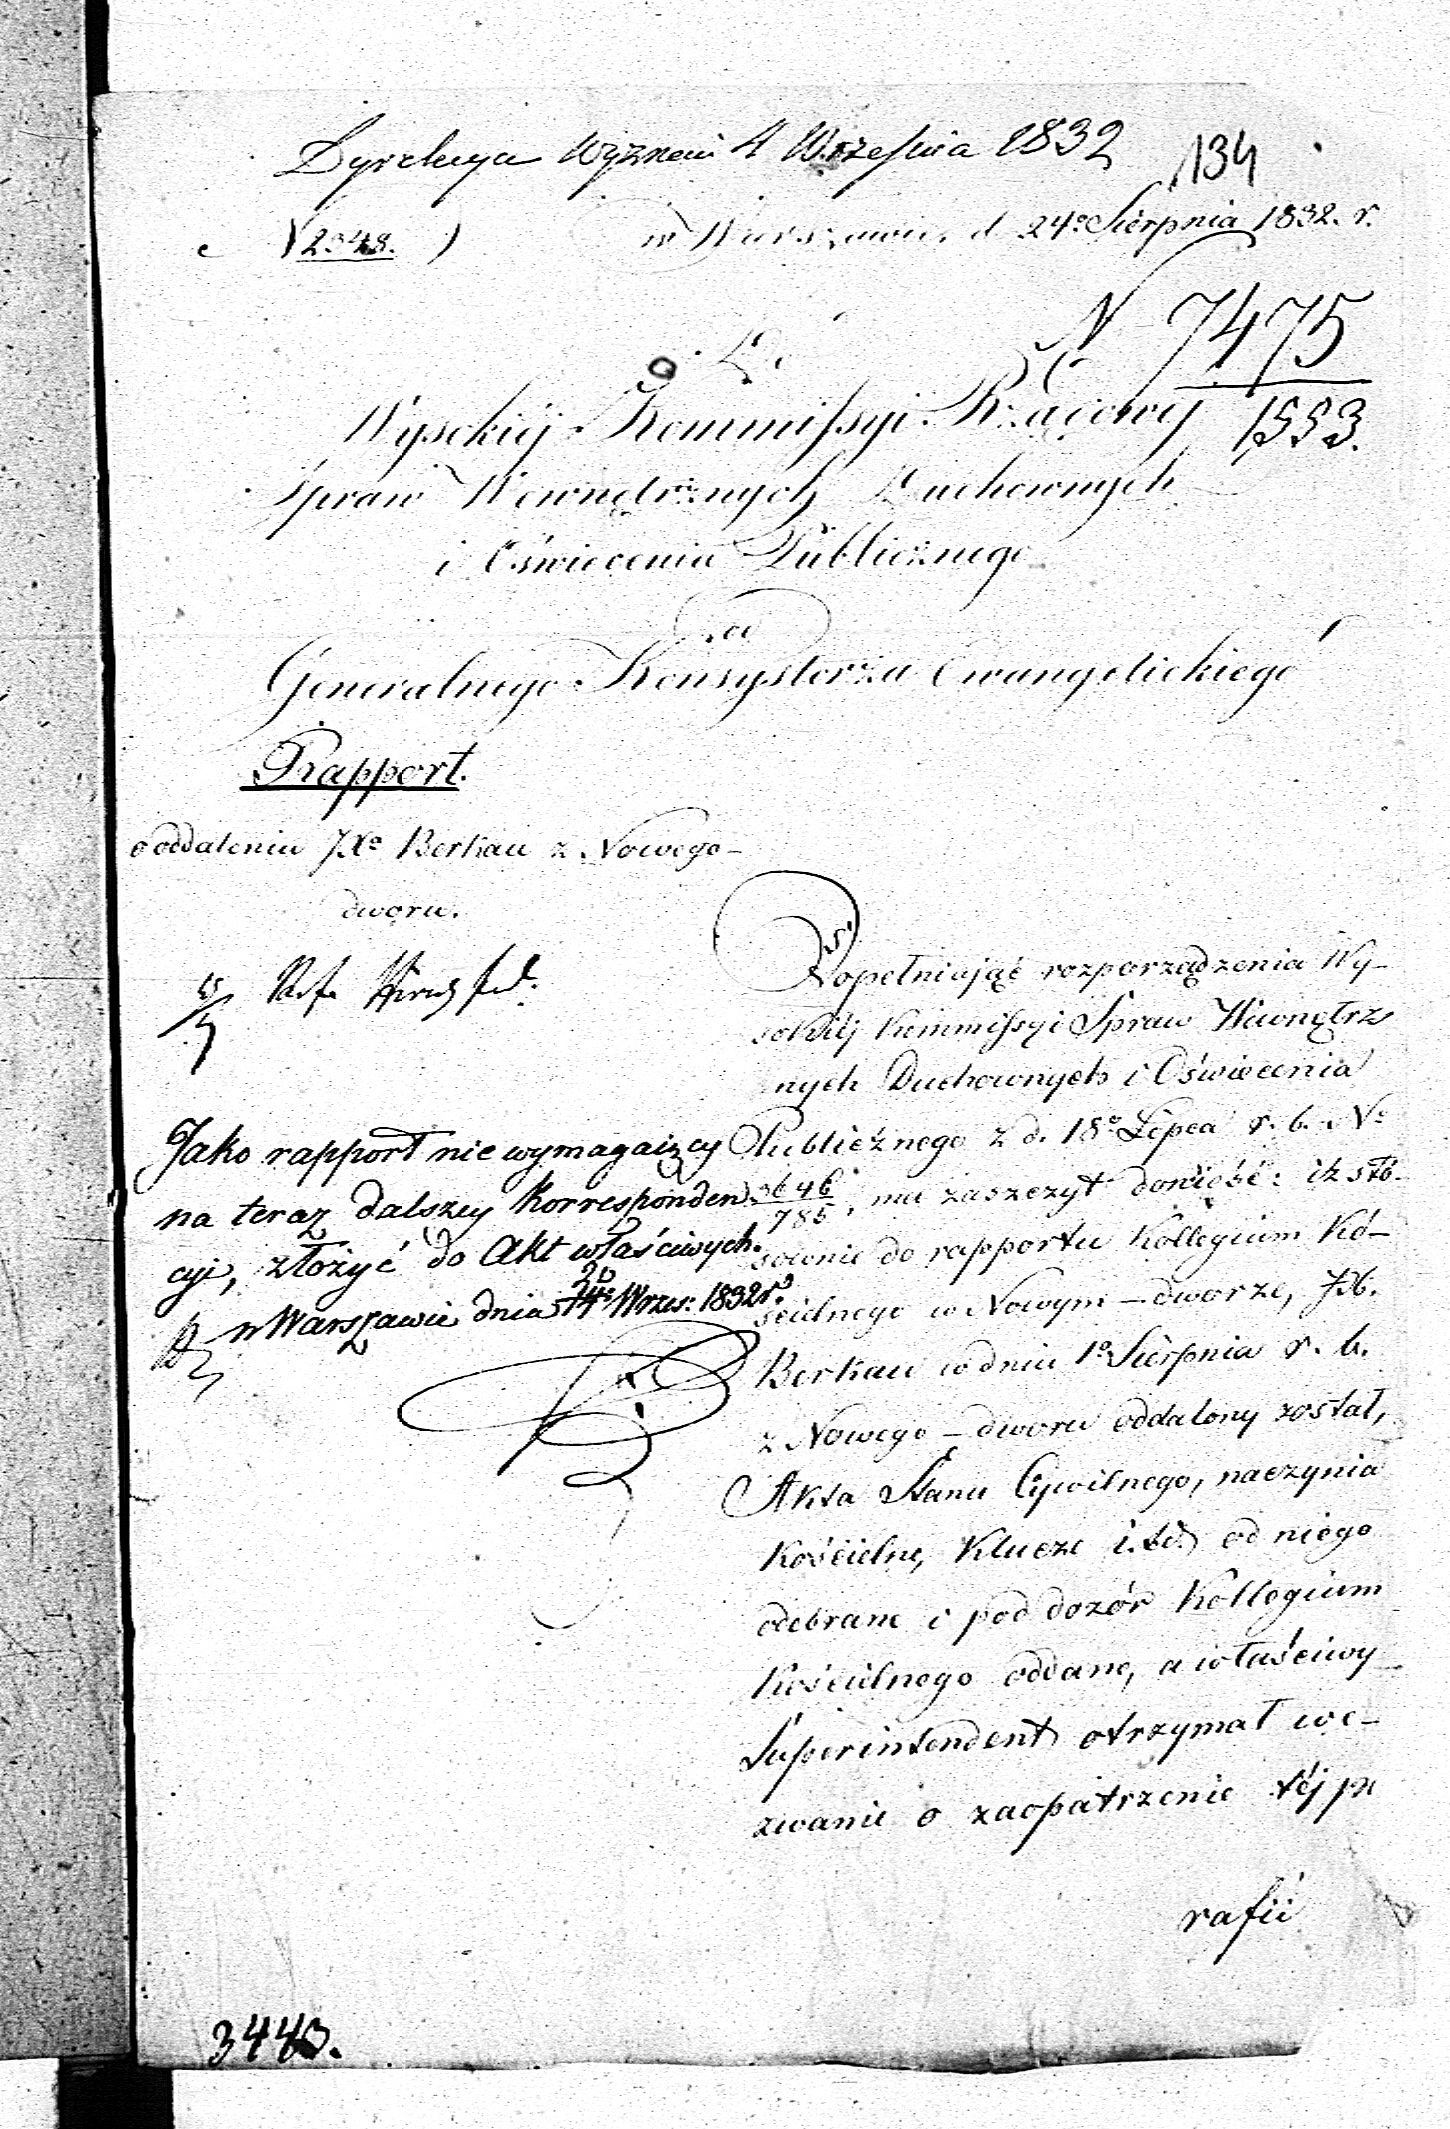 Dyrekcya Wyznań 4 Września 1832
134
2348.
w Warszawie, d. 24º Sierpnia 1832. r.
N 7475
1553.
Do
Wysokiéj Kommissyi Rządowéj
Spraw Wewnętrznych Duchownych
i Oświecenia Publicznego
od
Generalnego Konsystorza Ewangelickiego
Rapport.
o oddaleniu JXa Berkau z Nowego-
dworu.
Ref. Hirszfed.
Jako rapport nie wymagaiący
na teraz dalszey korresponden
cyi, złożyć do Akt właściwych.
w Warszawie dnia Wrześ: 1832 r.
Dopełniając rozporządzenia Wy-
sokiéj Kommissyi Spraw Wewnętrz
nych Duchownych i Oświecenia
Publicznego z d. 18º Lipca r. b. Nº
3646/785, ma zaszczyt donieść: iż sto-
sownie do rapportu Kollegium Ko-
ścielnego w Nowym-dworze, JX.
Berkau w dniu 1º Sierpnia r. b.
z Nowego-dworu oddalony został,
Akta Stanu Cywilnego, naczynia
Kościelne, Klucze i. t. d. od niego
odebrane i pod dozór Kollegium
Kościelnego oddane, a właściwy
Superintendent otrzymał we-
zwanie o zaopatrzenie téj pa
rafii
3443.